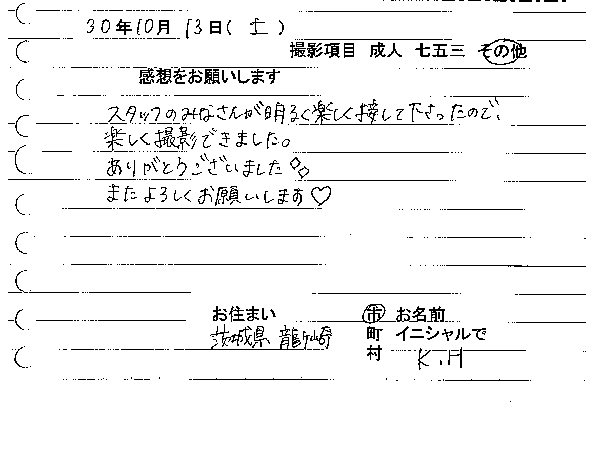 30年10月13日(土)
撮影項目 成人 七五三 その他
感想をお願いします
スタッフのみなさんが明るく楽しく接して下さったので、
楽しく撮影できました。
ありがとうございました◇◇
またよろしくお願いします♡
お住まい 市 お名前
茨城県 龍ヶ崎 町 イニシャルで
村 K.H